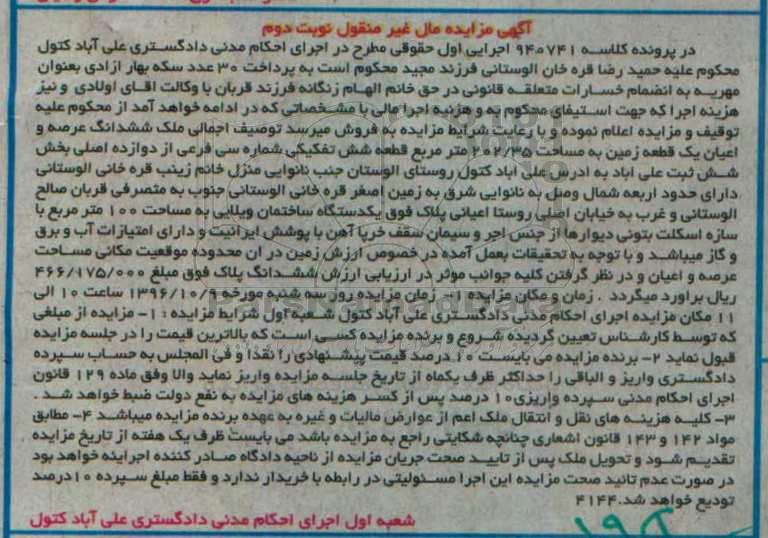 آگهی مزایده مال غیر منقول نوبت دوم
در پرونده کلاسه ۹۴۰۷۴۱ اجرایی اول حقوقی مطرح در اجرای احکام مدنی دادگستری علی آباد کتول
محکوم علیه حمید رضا قره خان الوستانی فرزند مجید محکوم است به پرداخت ۳۰ عدد سکه بهار ازادی بعنوان
مهریه به انضمام خسارات متعلقه قانونی در حق خانم الهام زنگانه فرزند قربان با وکالت اقای اولادی و نیز
هزینه اجرا که جهت استیفای محکوم به و هزنیه اجرا مالی با مشخصاتی که در ادامه خواهد آمد از محکوم علیه
توقیف و مزایده اعلام نموده و با رعایت شرایط مزایده به فروش میرسد توصیف اجمالی ملک ششدانگ عرصه و
اعیان یک قطعه زمین به مساحت ۲۰۲/۳۵ متر مربع قطعه شش تفکیکی شماره سی فرعی از دوازده اصلی بخش
شش ثبت علی اباد به ادرس علی آباد کتول روستای الوستان جنب نانوایی منزل خانم زینب قره خانی الوستانی
دارای حدود اربعه شمال وصل به نانوایی شرق به زمین اصغر قره خانی الوستانی جنوب به متصرفی قربان صالح
الوستانی و غرب به خیابان اصلی روستا اعیانی پلاک فوق یکدستگاه ساختمان ویلایی به مساحت ۱۰۰ متر مربع با
سازه اسکلت بتونی دیوارها از جنس اجر و سیمان سقف خرپا آهن با پوشش ایرانیت و دارای امتیازات آب و برق
و گاز میباشد و با توجه به تحقیقات بعمل آمده در خصوص ارزش زمین در ان محدوده موقعیت مکانی مساحت
عرصه و اعیان و در نظر گرفتن کلیه جوانب موثر در ارزیابی ارزش ششدانگ پلاک فوق مبلغ ۴۶۶/۱۷۵/۰۰۰
ریال براورد میگردد . زمان و مکان مزایده: ۱- زمان مزایده روز سه شنبه مورخه ۱۳۹۶/۱۰/۹ ساعت ۱۰ الی
۱۱ مکان مزایده اجرای احکام مدنی دادگستری علی آباد کتول شعبه اول شرایط مزایده : ۱- مزایده از مبلغی
که توسط کارشناس تعیین گردیده شروع و برنده مزایده کسی است که بالاترین قیمت را در جلسه مزایده
قبول نماید ۲- برنده مزایده می بایست ۱۰ درصد قیمت پیشنهادی را نقدا و فی المجلس به حساب سپرده
دادگستری واریز و الباقی را حداکثر ظرف یکماه از تاریخ جلسه مزایده واریز نماید والا وفق ماده ۱۲۹ قانون
اجرای احکام مدنی سپرده واریزی ۱۰ درصد پس از کسر هزینه های مزایده به نفع دولت ضبط خواهد شد .
۳- کلیه هزینه های نقل و انتقال ملک اعم از عوارض مالیات و غیره به عهده برنده مزایده میباشد ۴- مطابق
مواد ۱۴۲ و ۱۴۳ قانون اشعاری چنانچه شکایتی راجع به مزایده باشد می بایست ظرف یک هفته از تاریخ مزایده
تقدیم شود و تحویل ملک پس از تایید صحت جریان مزایده از ناحیه دادگاه صادر کننده اجراینه خواهد بود
در صورت عدم تائید صحت مزایده این اجرا مسئولیتی در رابطه با خریدار ندارد و فقط مبلغ سپرده ۱۰ درصد
تودیع خواهد شد. ۴۱۴۴
شعبه اول اجرای احکام مدنی دادگستری علی آباد کتول